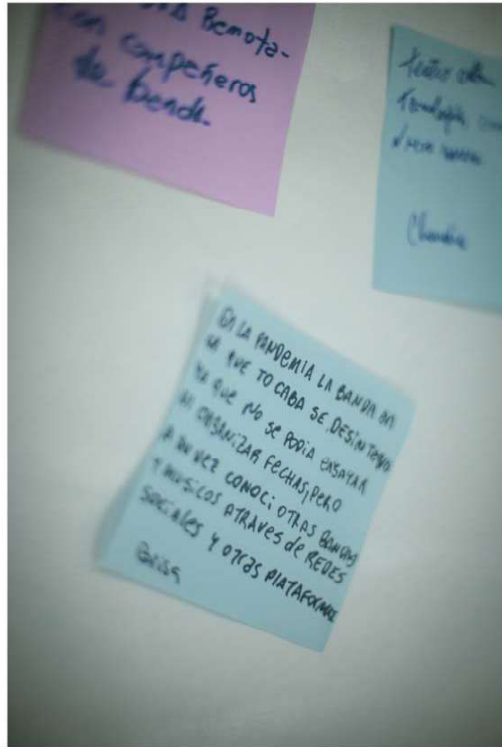 Remota-
con compañeros
de banda.
Teatro
Tecnología
Claudia
EN LA PANDEMIA LA BANDA EN
LA QUE TOCABA SE DESINTEGRO
YA QUE NO SE PODIA ENSAYAR
NI ORGANIZAR FECHAS, PERO
A SU VEZ CONOCI OTRAS BANDAS
Y MUSICOS ATRAVES de REDES
SOCIALES Y OTRAS PLATAFORMAS